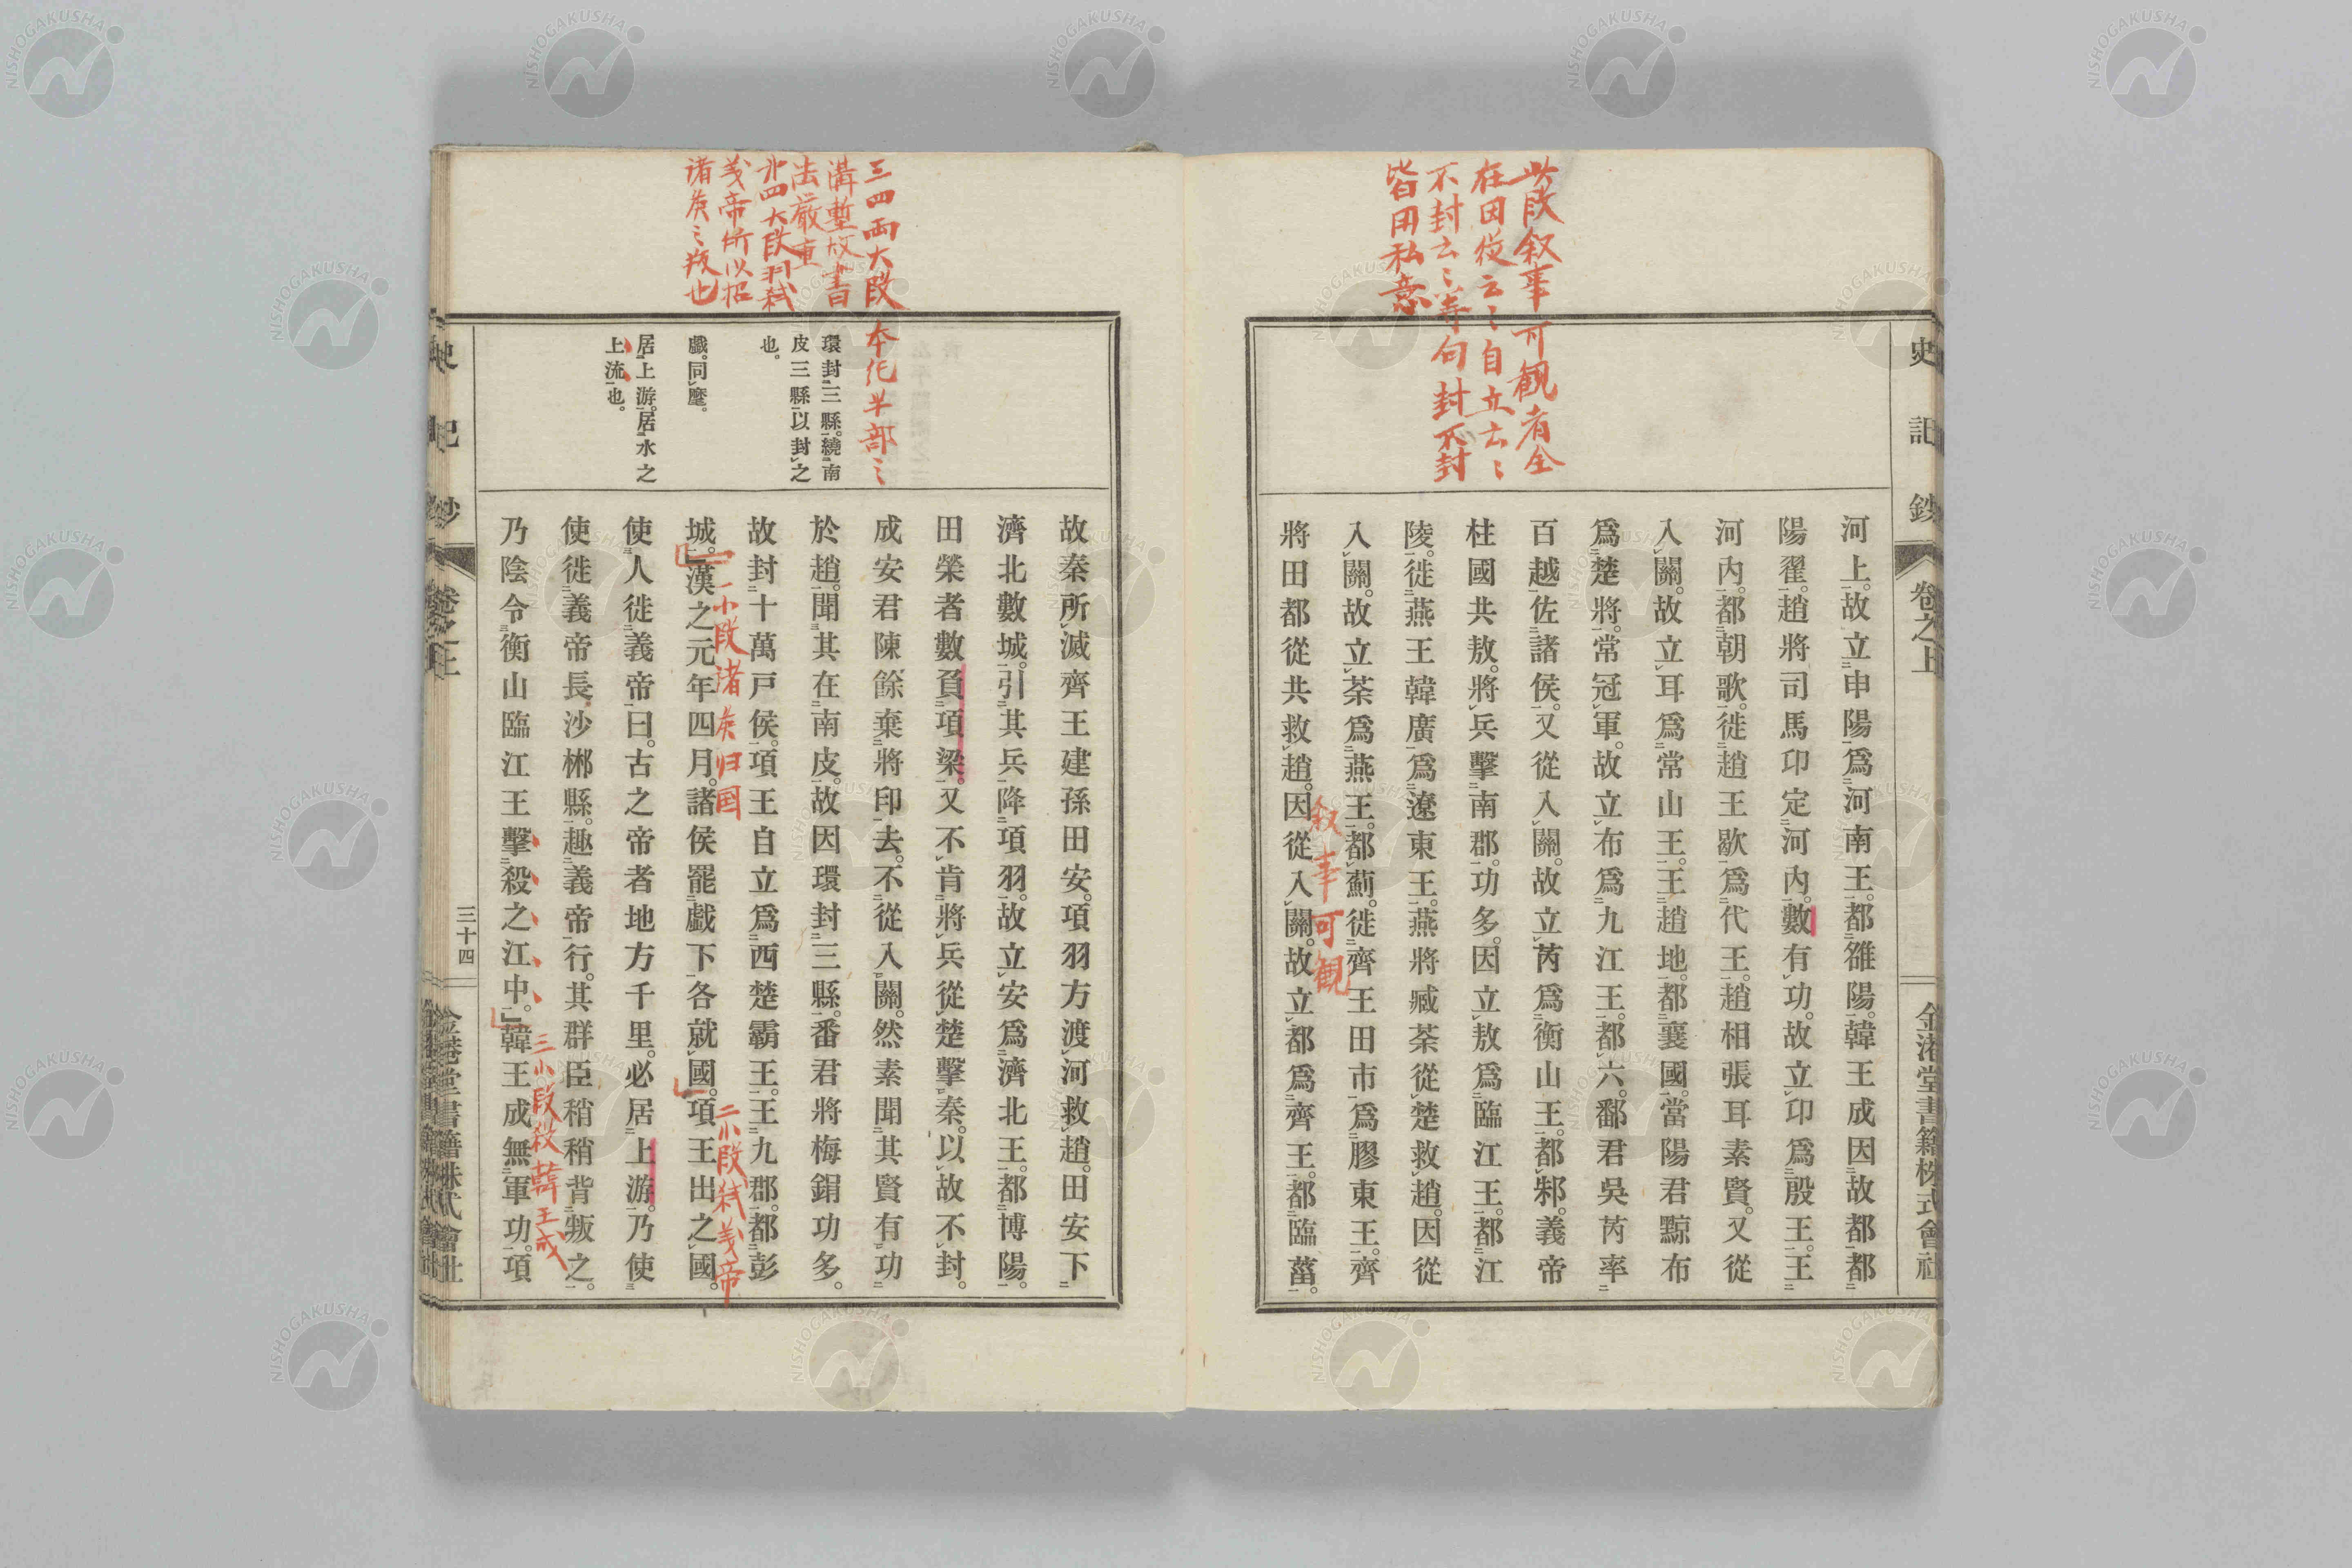 史記鈔 卷之上 金港堂書籍株式會社
此段叙事可観者全
在因從云〻自立云〻
不封云〻等句封不封
皆用私意
河上。故立申陽爲河南王。都雒陽。韓王成因故都都
陽翟。趙將司馬卬定河內。數有功。故立卬爲殷王。王
河內。都朝歌。徙趙王歇爲代王。趙相張耳素賢。又從
入關。故立耳爲常山王。王趙地。都襄國。當陽君黥布
爲楚將。常冠軍。故立布爲九江王。都六。鄱君吳芮率
百越佐諸侯。又從入關。故立芮爲衡山王。都邾。義帝
柱國共敖。將兵擊南郡。功多。因立敖爲臨江王。都江
陵。徙燕王韓廣爲遼東王。燕將臧荼從楚救趙。因從
入關。故立荼爲燕王。都薊。徙齊王田市爲膠東王。齊
叙事可観
將田都從共救趙。因從入關。故立都爲齊王。都臨菑。
三四両大段本紀半部之
溝塹故書
法嚴重
弑
義帝所以招
諸矦之叛也
環封三縣。繞南
皮三縣以封之
也。
戲。同麾。
居上游。居水之
上流也。
故秦所滅齊王建孫田安。項羽方渡河救趙。田安下
濟北數城。引其兵降項羽。故立安爲濟北王。都博陽。
田榮者數負項梁。又不肯將兵從楚擊秦。以故不封。
成安君陳餘棄將印去。不從入關。然素聞其賢有功
於趙。聞其在南皮。故因環封三縣。番君將梅鋗功多。
故封十萬戶侯。項王自立爲西楚霸王。王九郡。都彭
一小段諸矦归国
二小段弑義帝
城。漢之元年四月。諸侯罷戲下各就國。項王出之國。
使人徙義帝曰。古之帝者地方千里。必居上游。乃使
使徙義帝長沙郴縣。趣義帝行。其群臣稍稍背叛之。
三小段殺韓王成
乃陰令衡山臨江王擊殺之江中。韓王成無軍功。項
史記鈔 卷之上 三十四 金港堂書籍株式會社
NISHOGAKUSHA